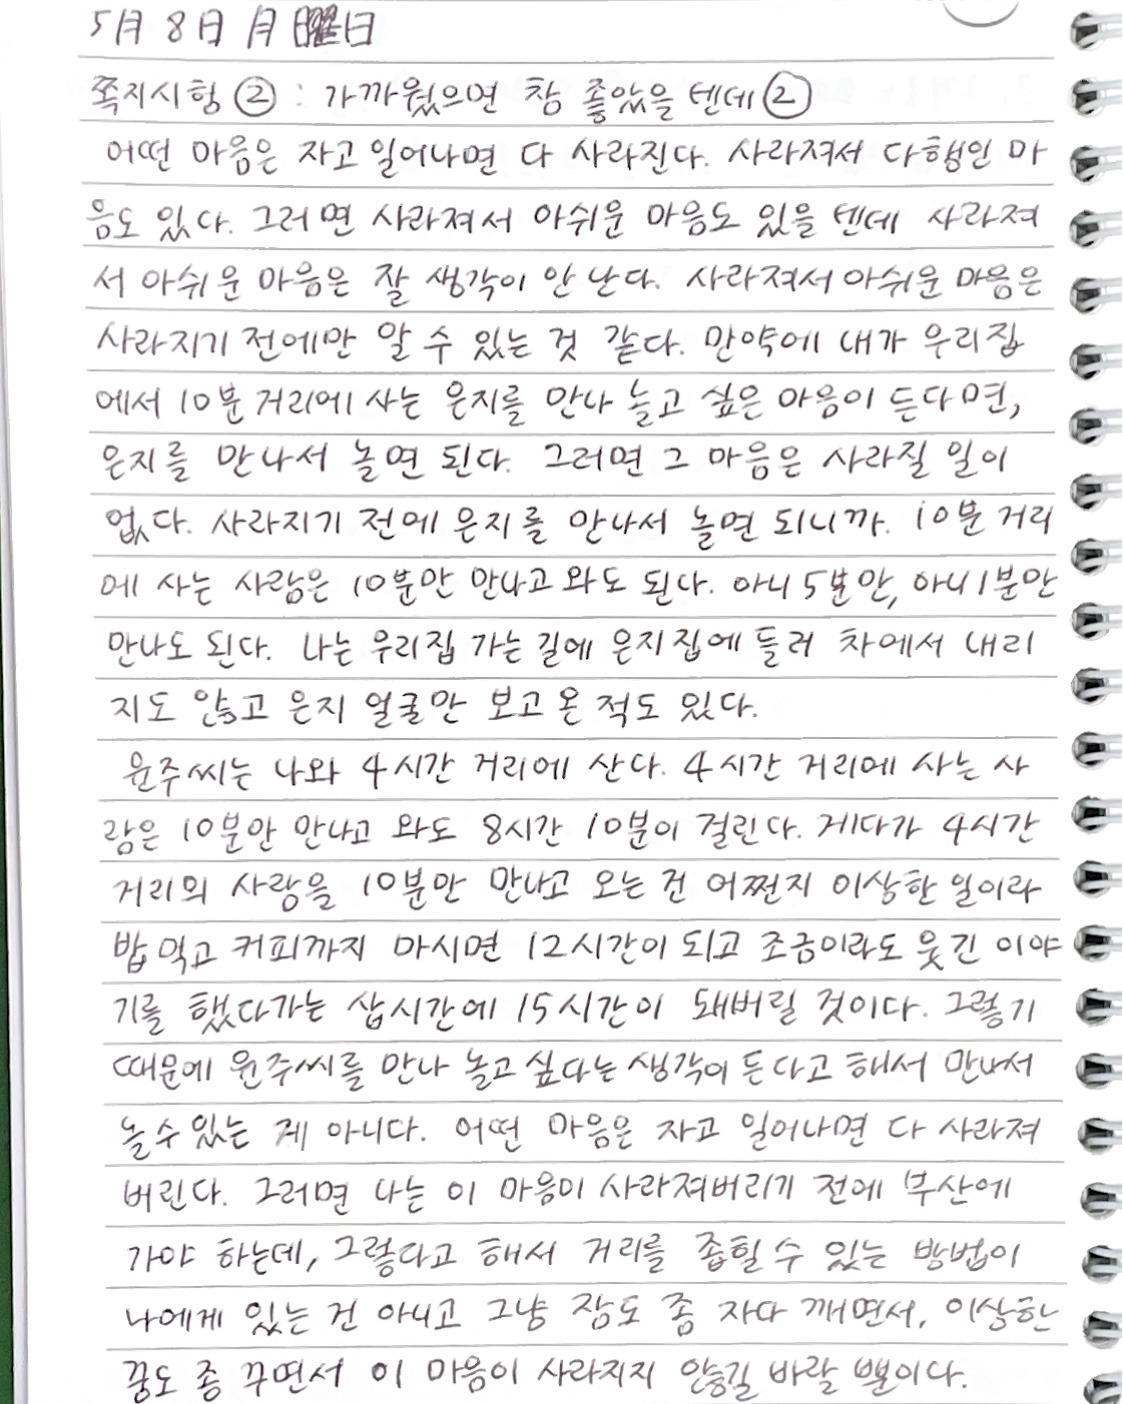 5月 8日 月曜日
쪽지시험 ② : 가까웠으면 참 좋았을 텐데 ②
어떤 마음은 자고 일어나면 다 사라진다. 사라져서 다행인 마
음도 있다. 그러면 사라져서 아쉬운 마음도 있을 텐데 사라져
서 아쉬운 마음은 잘 생각이 안 난다. 사라져서 아쉬운 마음은
사라지기 전에만 알 수 있는 것 같다. 만약에 내가 우리집
에서 10분 거리에 사는 은지를 만나 놀고 싶은 마음이 든다면,
은지를 만나서 놀면 된다. 그러면 그 마음은 사라질 일이
없다. 사라지기 전에 은지를 만나서 놀면 되니까. 10분 거리
에 사는 사람은 10분만 만나고 와도 된다. 아니 5분만, 아니 1분만
만나도 된다. 나는 우리집 가는 길에 은지집에 들러 차에서 내리
지도 않고 은지 얼굴만 보고 온 적도 있다.
윤주씨는 나와 4시간 거리에 산다. 4시간 거리에 사는 사
람은 10분만 만나고 와도 8시간 10분이 걸린다. 게다가 4시간
거리의 사람을 10분만 만나고 오는 건 어쩐지 이상한 일이라
밥 먹고 커피까지 마시면 12시간이 되고 조금이라도 웃긴 이야
기를 했다가는 삽시간에 15시간이 돼버릴 것이다. 그렇기
때문에 윤주씨를 만나 놀고 싶다는 생각이 든다고 해서 만나서
놀 수 있는 게 아니다. 어떤 마음은 자고 일어나면 다 사라져
버린다. 그러면 나는 이 마음이 사라져버리기 전에 부산에
가야 하는데, 그렇다고 해서 거리를 좁힐 수 있는 방법이
나에게 있는 건 아니고 그냥 잠도 좀 자다 깨면서, 이상한
꿈도 좀 꾸면서 이 마음이 사라지지 않길 바랄 뿐이다.